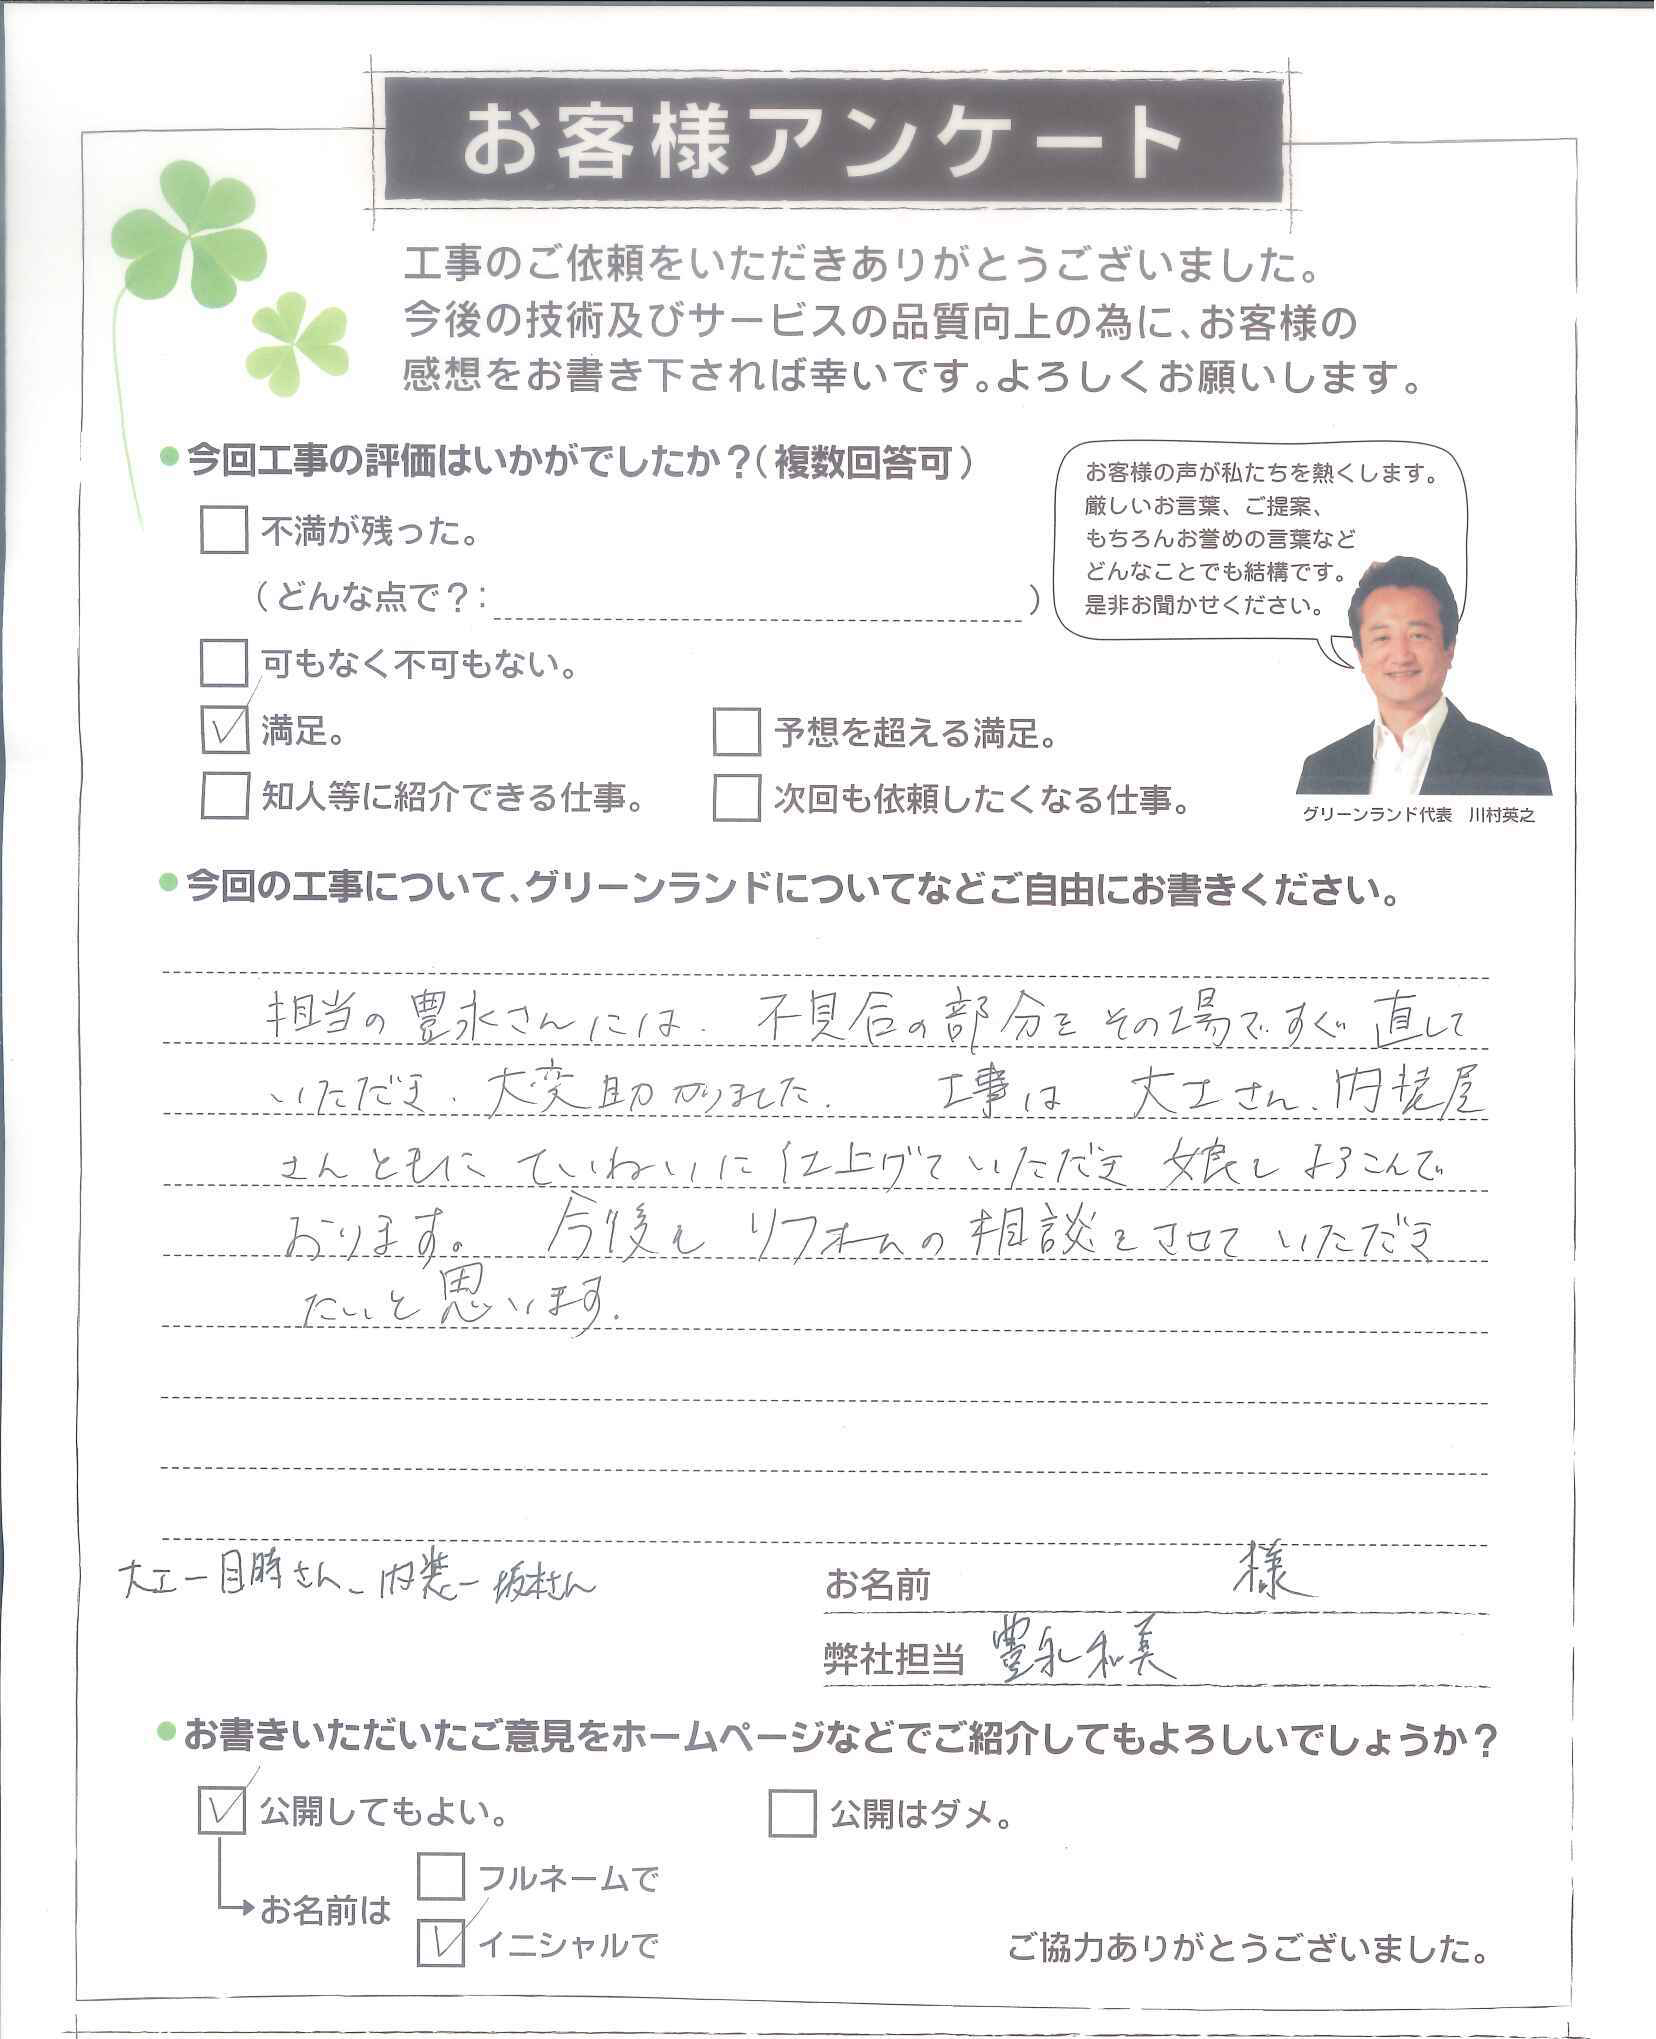 お客様アンケート
工事のご依頼をいただきありがとうございました。
今後の技術及びサービスの品質向上の為に、お客様の
感想をお書き下されば幸いです。よろしくお願いします。
今回工事の評価はいかがでしたか？（複数回答可）
不満が残った。
（どんな点で？：　）
可もなく不可もない。
満足。
予想を超える満足。
知人等に紹介できる仕事。
次回も依頼したくなる仕事。
お客様の声が私たちを熱くします。
厳しいお言葉、ご提案、
もちろんお誉めの言葉など
どんなことでも結構です。
是非お聞かせください。
グリーンランド代表　川村英之
今回の工事について、グリーンランドについてなどご自由にお書きください。
担当の豊永さんには、不具合の部分をその場ですぐ直して
いただき、大変助かりました。　工事は　大工さん、内装屋
さんともにていねいに仕上げていただき娘もよろこんで
おります。　今後もリフォームの相談をさせていただき
たいと思います。
大工ー目時さん、内装ー坂本さん
お名前　様
弊社担当　豊永和美
お書きいただいたご意見をホームページなどでご紹介してもよろしいでしょうか？
公開してもよい。
公開はダメ。
お名前は
フルネームで
イニシャルで
ご協力ありがとうございました。